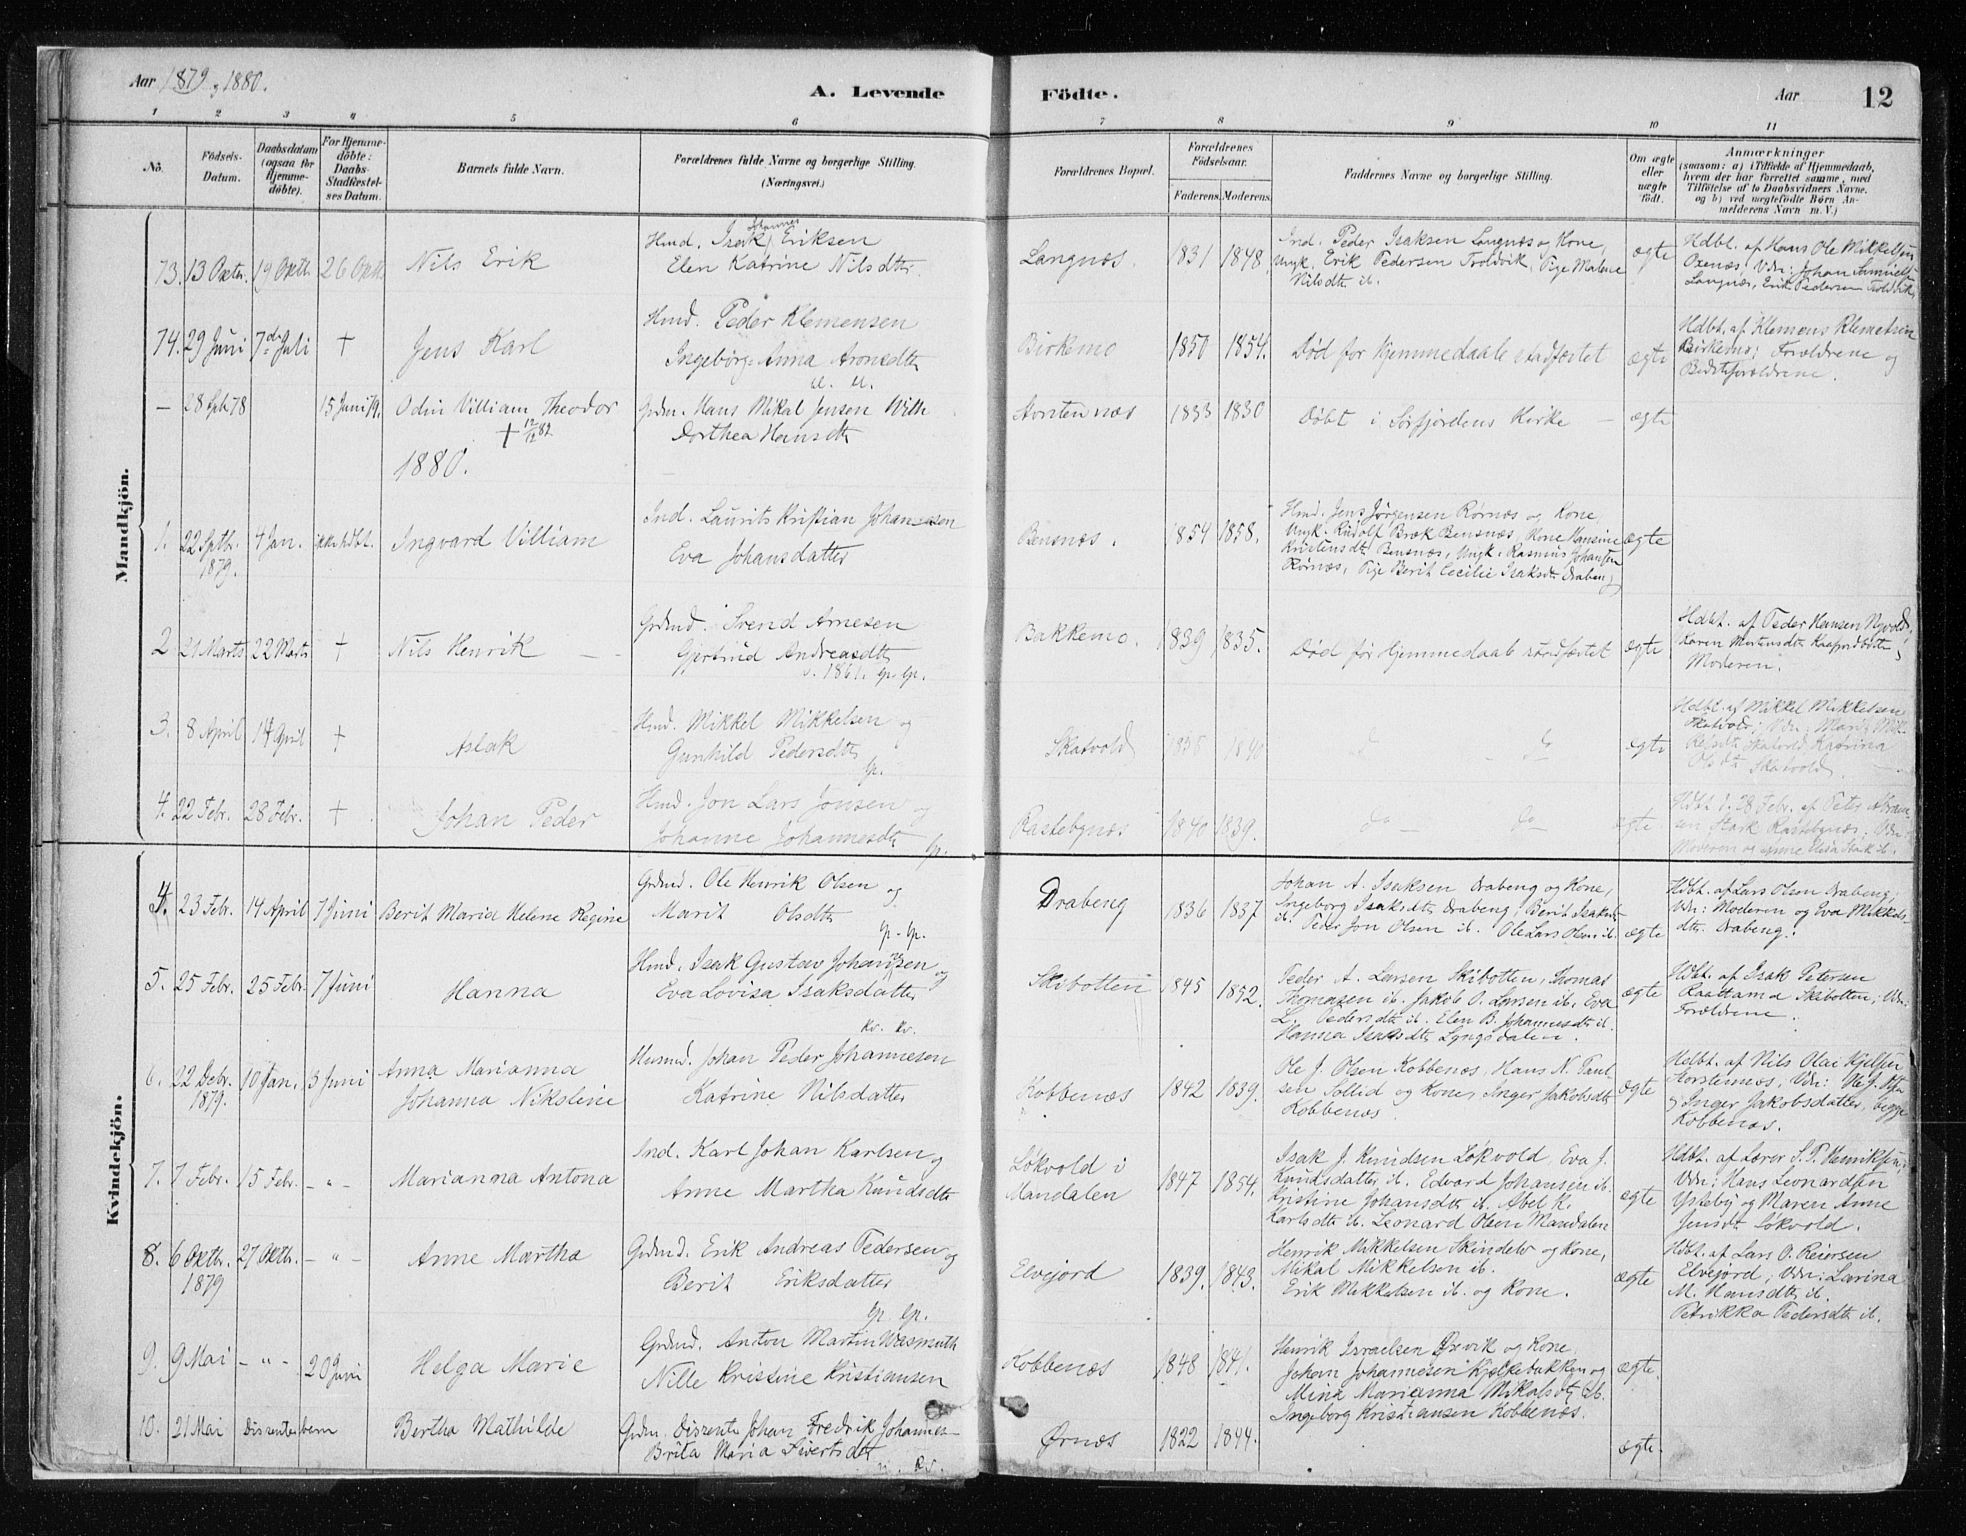 Aar 1879 og 1880.
A. Levende Födte.
Aar
12
1 2 3 4 5 6 7 8 9 10 11
No.
Födsels-Datum.
Daabsdatum (ogsaa for Hjemme-döbte).
For Hjemme-döbte: Daabs-Stadfæstel-ses Datum.
Barnets fulde Navn.
Forældrenes fulde Navne og borgerlige Stilling. (Næringsvei.)
Forældrenes Bopæl.
Forældrenes Födselsaar. Faderens. Moderens.
Faddernes Navne og borgerlige Stilling.
Om ægte eller uægte födt.
Anmærkninger (saasom: a) i Tilfælde af Hjemmedaab, hvem der har forrettet samme, med Tilföielse af to Daabsvidners Navne, og b) ved uægtefödte Børn An-melderens Navn m. V.)
Mandkjön.
73. 13 Oktbr. 19 Oktb 26 Oktb Nils Erik
Hmd. Isak Johannes Eriksen
Elen Katrine Nilsdtr.
Langnæs. 1831 1848.
Ind. Peder Isaksen Langnæs og Kone,
Ungk. Erik Pedersen Troldvik, Pige Malene
Nilsdtr ib.
ægte
Hdbt. af Hans Ole Mikkelsen
Oxenæs; Vdn: Johan Samuels.
Langnæs, Erik Pedersen Troldvik
74. 29 Juni 7de Juli + Jens Karl
Hmd. Peder Klemensen
Ingeborg Anna Aronsdtr
Birkemo 1850 1854.
Død før Hjemmedaabs stadfæstet
ægte
Hdbt. af Klemens Klemetsen
Birkemo; Forældrene og
Bedsteforældrene.
— 28 Spb. 78 15 Juni 79. Odin Villiam Theodor
+ 12/12 82
Grdm. Hans Mikal Jensen With
Dorthea Hansdtr
Stortennæs 1833 1830
Døbt i Sørfjordens Kirke — ægte
1880.
1. 22 Sptbr. 1879. 4 Jan. ikke hdbt. Ingvard Villiam
Ind. Laurits Kristian Johannesen
Eva Johansdatter
Bensnæs. 1854 1858.
Hmd. Jens Jørgensen Rørnæs og Kone,
Ungk. Rudolf Bræk Bensnæs, Kone Hansine
Kristensdtr Bensnæs, Ungk. Rasmus Johansen
Rørnæs, Pige Berit Cecilie Isaksdtr Draben
ægte
2 21 Marts 22 Marts + Nils Henrik
Grdmd. Svend Arnesen
Gjertrud Andreasdtr
Bakkemo. 1839 1835.
Død før Hjemmedaab stadfæstet
ægte
Hdbt. af Peder Hansen Nyvold,
Karen Mortensdtr Kaafjordbotn,
Moderen.
3. 8 April 14 April + Aslak
Hmd. Mikkel Mikkelsen og
Gunhild Pedersdtr
Skatvold 1838 1840
do do ægte
Hdbt. af Mikkel Mikkelsen
Skatvold; Vdn: Marit Mik-
kelsdtr Skatvold, Katrina
Olsdtr Skatvold.
4. 22 Febr. 28 Febr. + Johan Peder
Hmd. Jon Lars Jonsen og
Johanne Johannesdtr
Rastebynæs 1840 1839.
do — do — ægte.
Hdbt. d. 28 Febr. af Peter Abram-
sen Rastebynæs; Vdn:
Moderen og
Kvindekjön.
4. 23 Febr. 14 April 7 Juni Berit Maria Helene Regine
Grdmd. Ole Henrik Olsen og
Marit Olsdtr
Drabeng 1836 1837
Johan A. Isaksen Drabeng og Kone,
Ingeborg Isaksdtr Drabeng, Berit Isaksdtr
ib. Peder Jon Olsen ib. Ole Lars Olsen ib.
ægte
Hdbt. af Lars Olsen Drabeng;
Vdn: Moderen og Eva Mikkels-
dtr. Drabeng.
5. 25 Febr. 25 Febr. 7 Juni Hanna
Hmd. Isak Gustav Johannsen og
Eva Lovisa Isaksdatter
Skibotten 1845 1852.
Peder A. Larsen Skibotten, Thomas
Thomassen ib. Jakob O. Larsen ib. Eva
L. Pedersdtr ib. Elen B. Johannesdtr ib.
Hanna Isaksdtr Lyngsdalen.
ægte
Hdbt. af Isak Petersen
Raattama Skibotten; Vdn:
Forældrene.
6. 22 Decbr. 1879. 10 Jan. 3 Juni Anna Marianna
Johanna Nikoline
Husmd. Johan Peder Johannesen
Katrine Nilsdatter
Kobbenæs 1842 1839.
Ole J. Olsen Kobbenæs, Hans N. Paul-
sen Sollid og Kone, Inger Jakobsdtr
Kobbenæs.
ægte
Hdbt. af Nils Olai Kjelsen
Storstennæs, Vdn: Ole J. Olsen
og Inger Jakobsdatter, begge
Kobbenæs.
7. 7 Febr. 15 Febr. — „ — Marianna Antona
Ind. Karl Johan Karlsen og
Anne Martha Knudsdtr
Løkvold i
Mandalen 1847 1854.
Isak J. Knudsen Løkvold, Eva J.
Knudsdatter ib. Edvard Johansen ib.
Kristine Johansdtr ib. Abel K.
Karlsdtr ib. Leonard Olsen Mandalen
ægte
Hdbt. af Lærer S. P. Henriksen;
Vdn: Hans Leonardsen
Ysteby og Maren Anne
Jensdtr Løkvold.
8. 6 Oktbr. 1879 27 Oktbr. — „ — Anne Martha
Grdmd. Erik Andreas Pedersen og
Berit Eriksdatter
Elvejord 1839. 1843.
Henrik Mikkelsen Skindelv og Kone,
Mikal Mikkelsen ib.
Erik Mikkelsen ib. og Kone.
ægte
Hdbt. af Lars O. Reiersen
Elvejord; Vdn: Lavina
M. Hansdtr ib.
Petrikka Pedersdtr ib.
9. 9 Mai — „ — 20 Juni Helga Marie
Grdmd. Anton Martin Wasmuth
Nille Kristine Kristiansen
Kobbenæs 1848 1841.
Henrik Israelsen Ørsvik og Kone,
Johan Johannesen Kjelkebakken og
Mina Marianna Mikalsdtr ib.
Ingeborg Kristiansen Kobbenæs.
ægte.
10. 21 Mai Dissenterbarn Bertha Mathilde
Grdm. Dissenter Johan Fredrik Johannes-
Brita Maria Sivertsdtr
Ørnæs 1822 1844.
ægte.